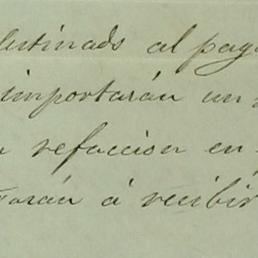 destinads al pag
importarán un
refaccion en
rán á recibir